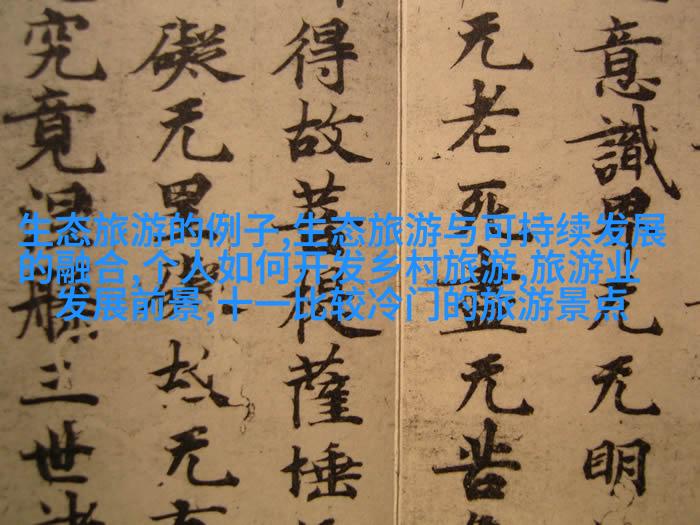 生态旅游的例子,生态旅游与可持续发展
的融合,个人如何开发乡村旅游,旅游业
发展前景,十一比较冷门的旅游景点
意識界无无明
无老死盡无苦
得故菩提薩埵
礙无罣礙故无有
究竟涅槃三世諸